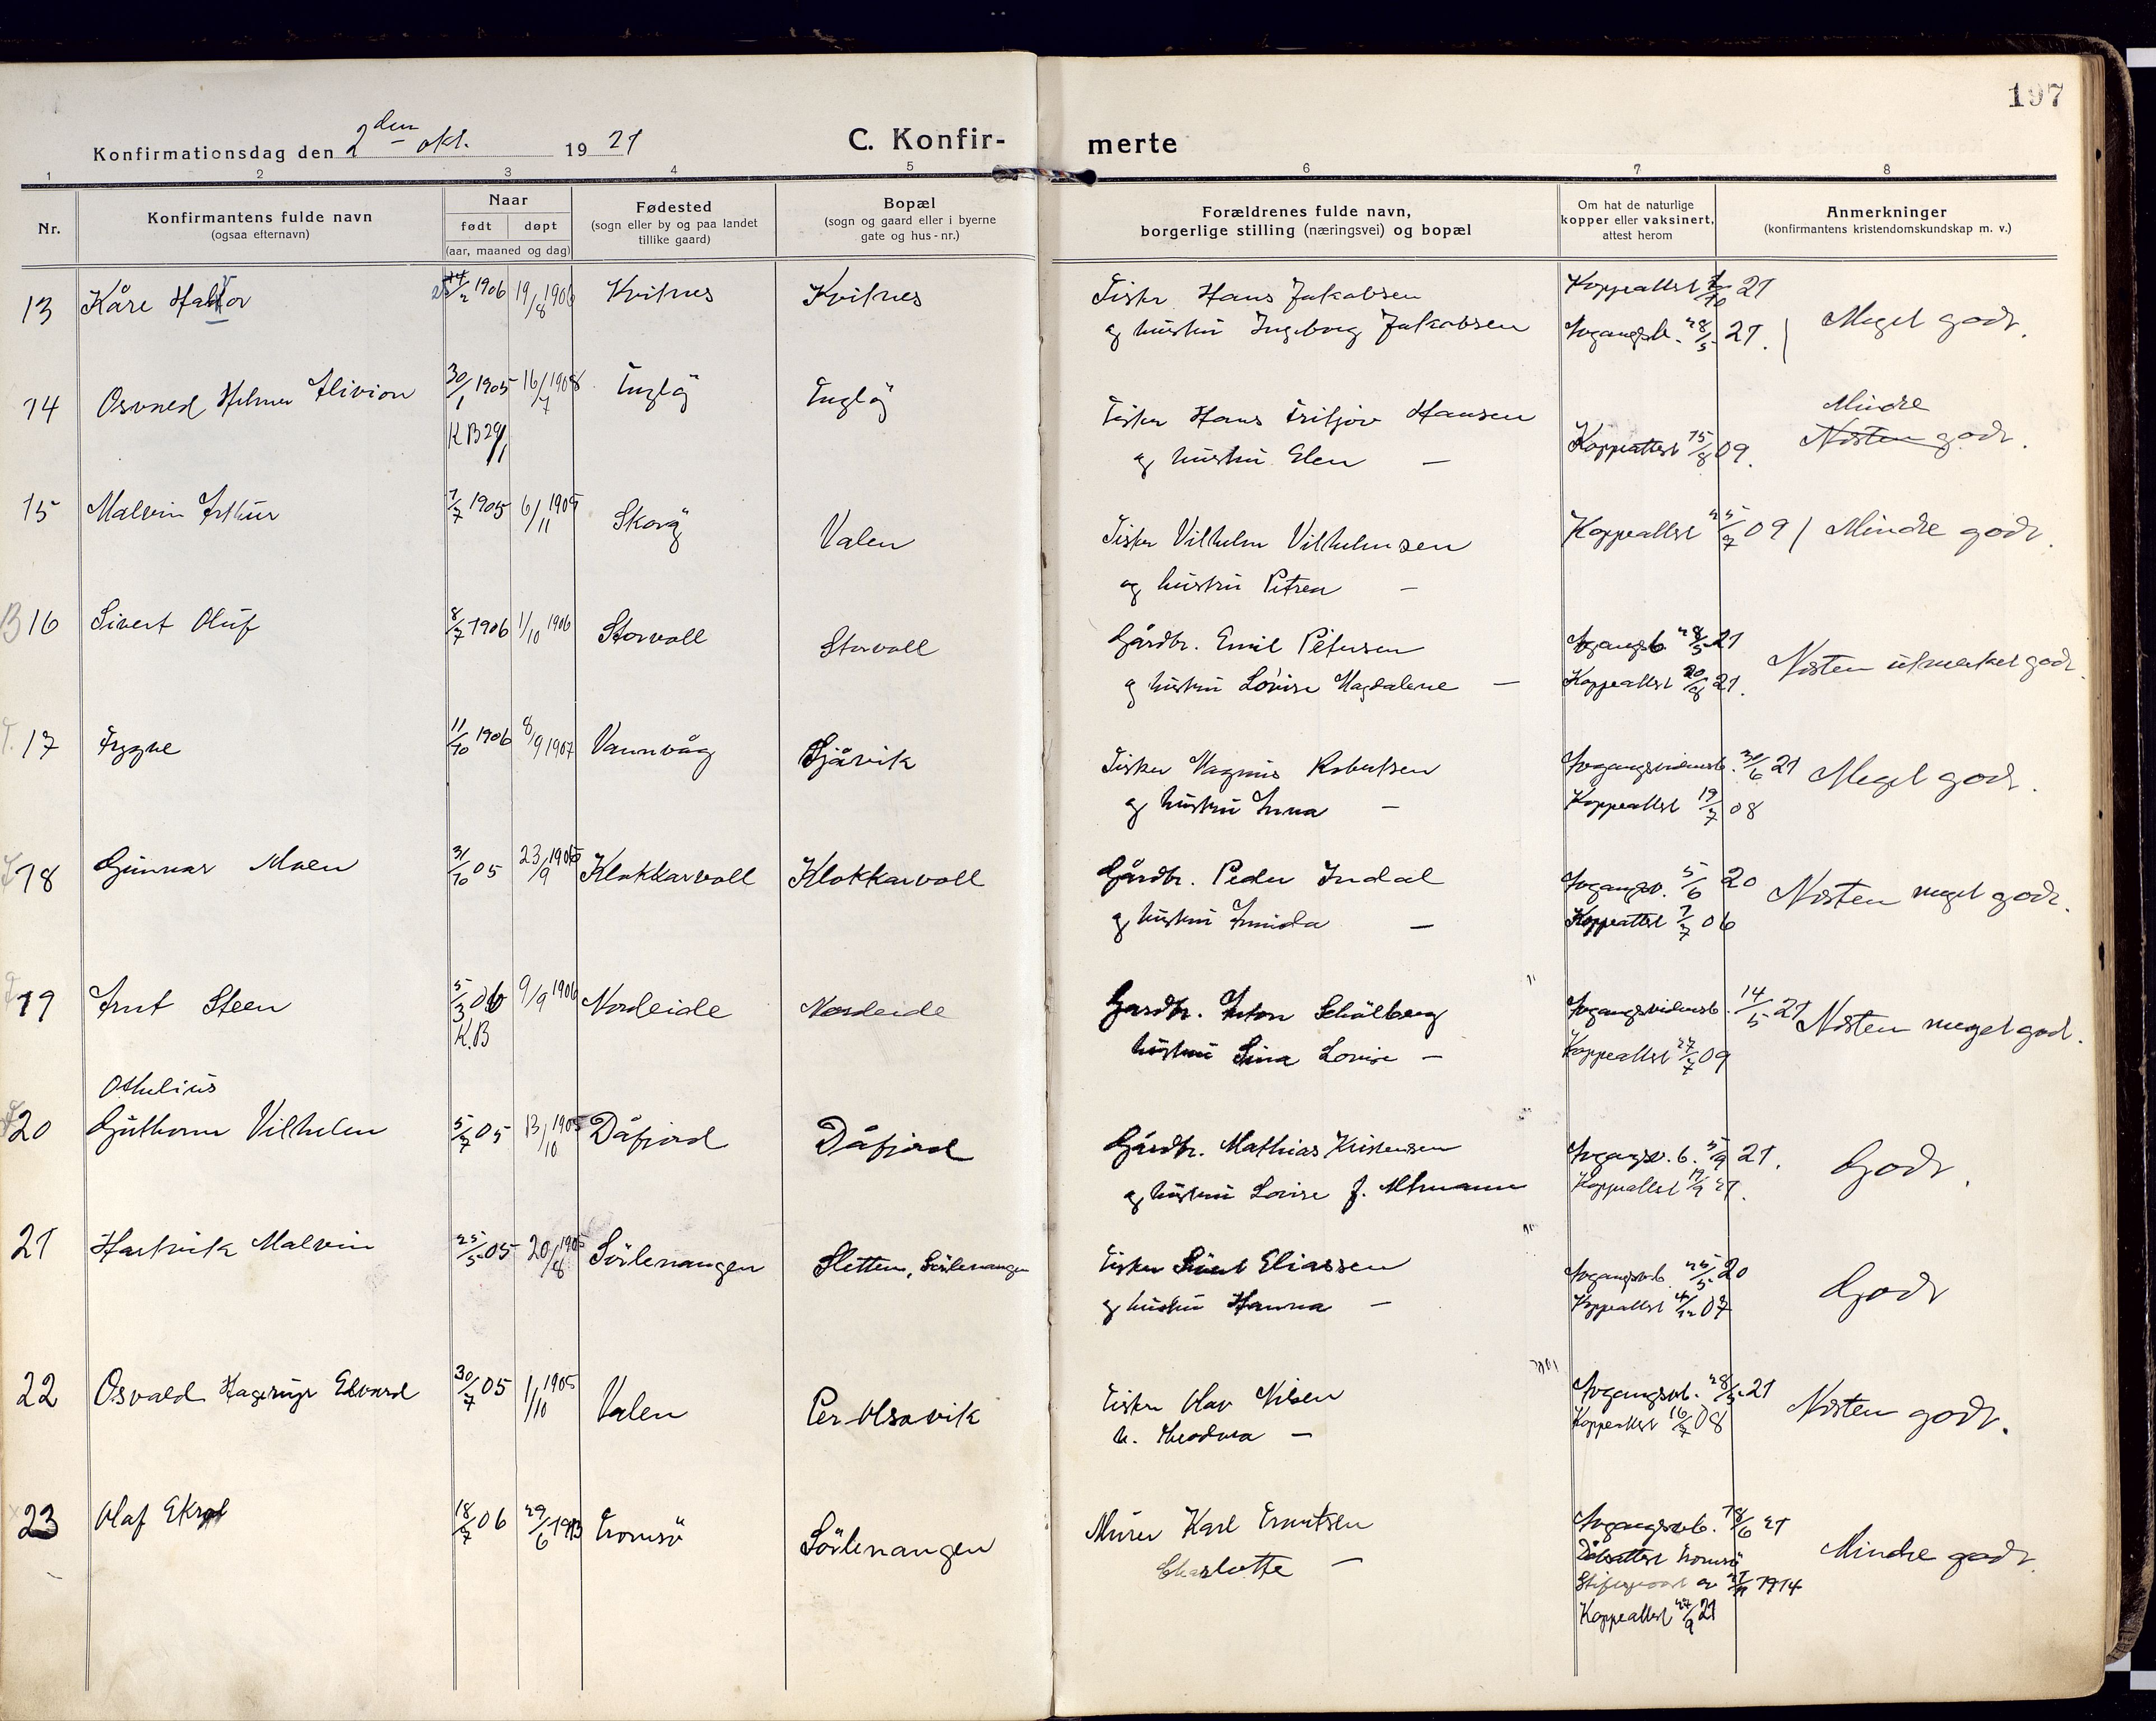 197
Konfirmationsdag den 2den okt. 1921
C. Konfir-
merte
1 2 3 4 5 6 7 8
Nr.
Konfirmantens fulde navn
(ogsaa efternavn)
Naar
født døpt
(aar, maaned og dag)
Fødested
(sogn eller by og paa landet
tillike gaard)
Bopæl
(sogn og gaard eller i byerne
gate og hus-nr.)
Forældrenes fulde navn,
borgerlige stilling (næringsvei) og bopæl
Om hat de naturlige
kopper eller vaksinert,
attest herom
Anmerkninger
(konfirmantens kristendomskundskap m. v.)
13 Kåre 1906 19/8 1906 Kvitnes Kvitnes Fisker Hans Jakobsen Koppeattest 21
og hustru Ingeborg Jakobsen 28/5 21. Meget godt.
14 Osvald Hilmer 30/1 1905 16/7 1908 Fugløy Fugløy Fisker Hans Fritjov Hansen Mindre
K B 29/1 og hustru Elen — Koppeattest 15/8 09. Næsten godt.
15 Malvin Arthur 7/7 1905 6/11 1905 Skorøy Valen Fisker Vilhelm Vilhelmsen Koppeattest 25/7 09 Mindre godt.
og hustru Petrea —
B 16 Sivert Oluf 8/7 1906 1/10 1906 Storvoll Storvoll Gårdbr. Emil Petersen Avgangsb. 28/5 21
og hustru Lovise Magdalene — Koppeattest 20/8 21. Næsten utmerket godt.
T. 17 Trygve 11/10 1906 8/9 1907 Vannvåg Sjåvik Fisker Magnus Robertsen Avgangsvidnesb. 30/6 21 Meget godt.
og hustru Anna — Koppeattest 19/7 08
18 Gunnar Moen 31/10 05 23/9 1906 Klokkarvoll Klokkarvoll Gårdbr. Peder Indal Avgangsv. 5/6 20 Næsten meget godt.
og hustru — Koppeattest 7/7 06
19 Arnt Steen 5/3 06 9/9 1906 Nordeide Nordeide Gardbr. Anton Schølberg Avgangsvidnesb. 14/5 21 Næsten meget godt.
K.B hustru Sina Lovise — Koppeattest 27/7 09
Othelius
20 Guthorm Vilhelm 5/7 05 13/10 1905 Dåfjord Dåfjord Gårdbr. Mathias Kristensen Avgangsv.b. 5/9 21. Godt.
og hustru Lovise f. Altmann Koppeattest 17/9 21.
21 Hartvik Malvin 25/5 05 20/8 1905 Sörlenangen Sletten, Sörlenangen Fisker Sivert Eliassen Avgangsvb. 25/5 20 Godt
og hustru Hanna — Koppeattest 4/12 07
22 Osvald Hagerup Edvard 30/7 05 1/10 1905 Valen Per-Olsavik Fisker Olav Nilsen Avgangsvb. 28/5 21 Næsten godt.
h. Theodora — Koppeattest 16/7 08
23 Olaf 18/7 06 29/6 1913 Tromsö Sörlenangen Murer Karl Arntsen Avgangsvb. 18/6 21
Charlotte — Dåbsattest Tromsö Mindre godt
av 1914
Koppeattest 27/9 21